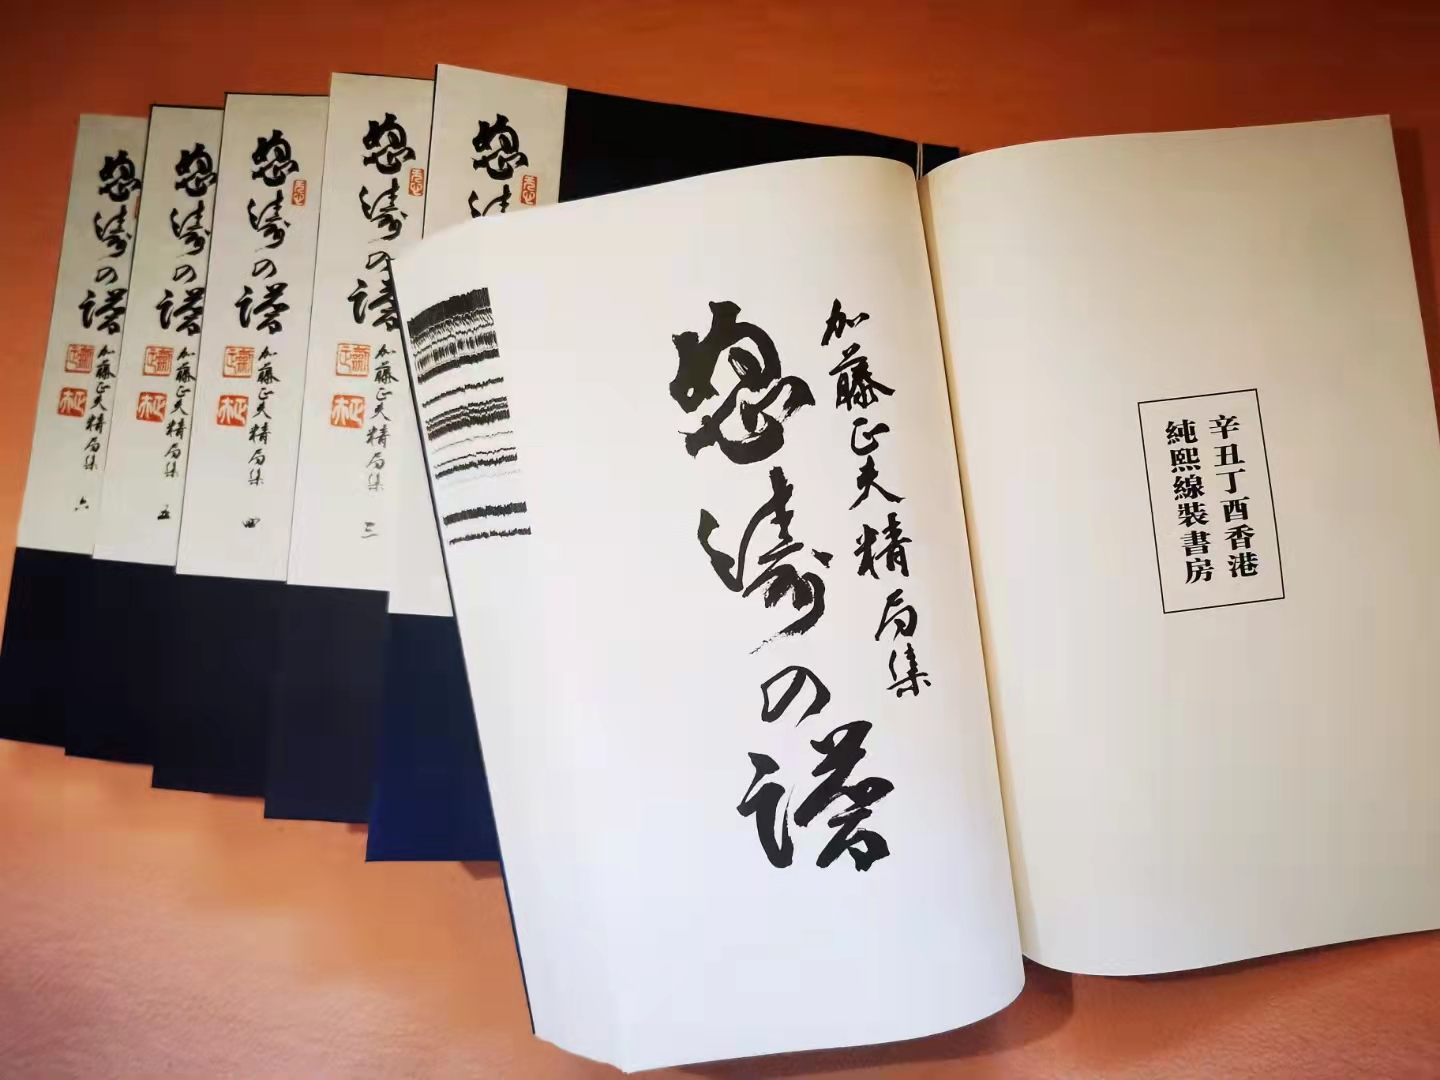 怒涛の譜
加藤正夫精局集 六
怒涛の譜
加藤正夫精局集 五
怒涛の譜
加藤正夫精局集 四
怒涛の譜
加藤正夫精局集 三
怒涛
加藤正夫精局集
怒涛の譜
辛丑丁酉香港
純熙線裝書房